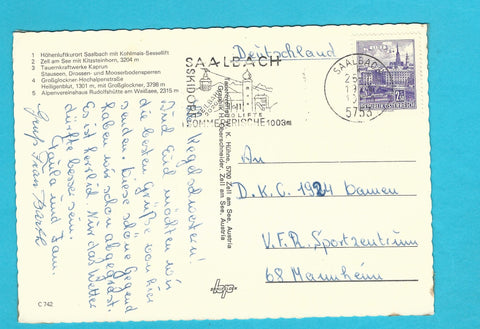 1 Höhenluftkurort Saalbach mit Kohlmais-Sessellift
2 Zell am See mit Kitzsteinhorn, 3204 m
3 Tauernkraftwerke Kaprun
Stauseen, Drossen- und Mooserbodensperren
4 Großglockner-Hochalpenstraße
Heiligenblut, 1301 m, mit Großglockner, 3798 m
5 Alpenvereinshaus Rudolfshütte am Weißsee, 2315 m
Kegelschwestern!
Und Euch möchten wir
die besten Grüße von hier
senden. Diese schöne Gegend
haben wir schon abgegrast.
Es ist herrlich. Nur das Wetter
dürfte besser sein.
Paula und Fam.
Gruß Frau
C 742
W. K. Hühne, 5700 Zell am See, Austria
H. Oberschneider, Zell am See, Austria
Deutschland
SAALBACH
SKIDORF
LIFTE
SOMMERFRISCHE 1003m
SAALBACH
5753
REPUBLIK ÖSTERREICH
An
D.K.C. 1924 Damen
V.F.R. Sportzentrum
68 Mannheim